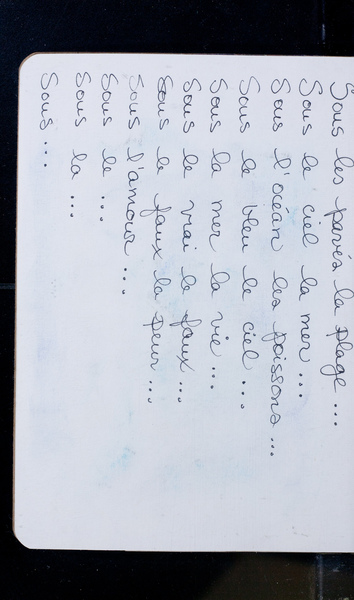 Sous les pavés la plage ...
Sous le ciel la mer ...
Sous l'océan les poissons ...
Sous le bleu le ciel ...
Sous la mer la vie ...
Sous le vrai le faux ...
Sous le faux la peur ...
Sous l'amour ...
Sous le ...
Sous la ...
Sous ...